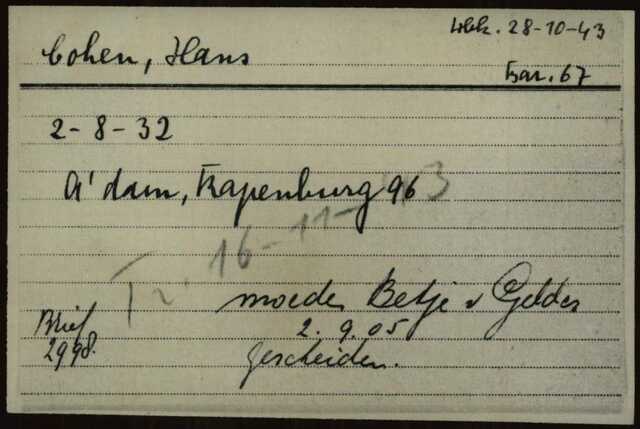 Wbk. 28-10-43
Cohen, Hans
Bar. 67
2-8-32
A'dam, Rapenburg 96
Tr. 16-11-43
moeder Betje v Gelder
2.9.05
gescheiden.
Brief
2998.